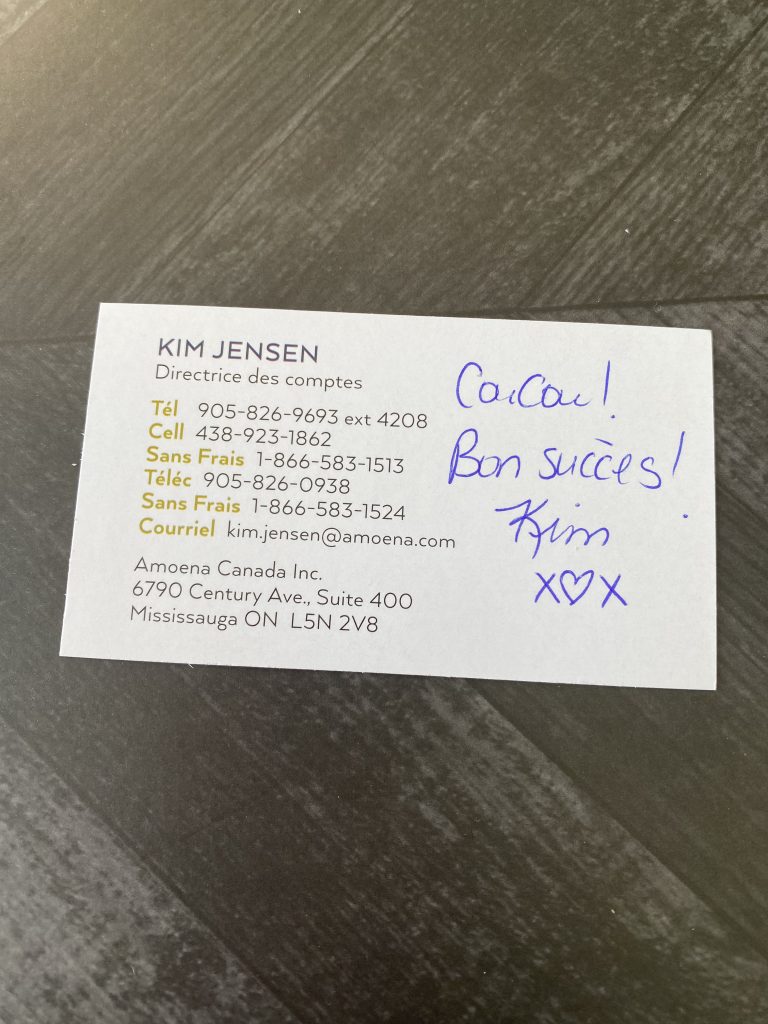 KIM JENSEN
Directrice des comptes
Tél 905-826-9693 ext 4208
Cell 438-923-1862
Sans Frais 1-866-583-1513
Téléc 905-826-0938
Sans Frais 1-866-583-1524
Courriel kim.jensen@amoena.com
Amoena Canada Inc.
6790 Century Ave., Suite 400
Mississauga ON L5N 2V8
CouCou!
Bon succès!
Kim
X♡X